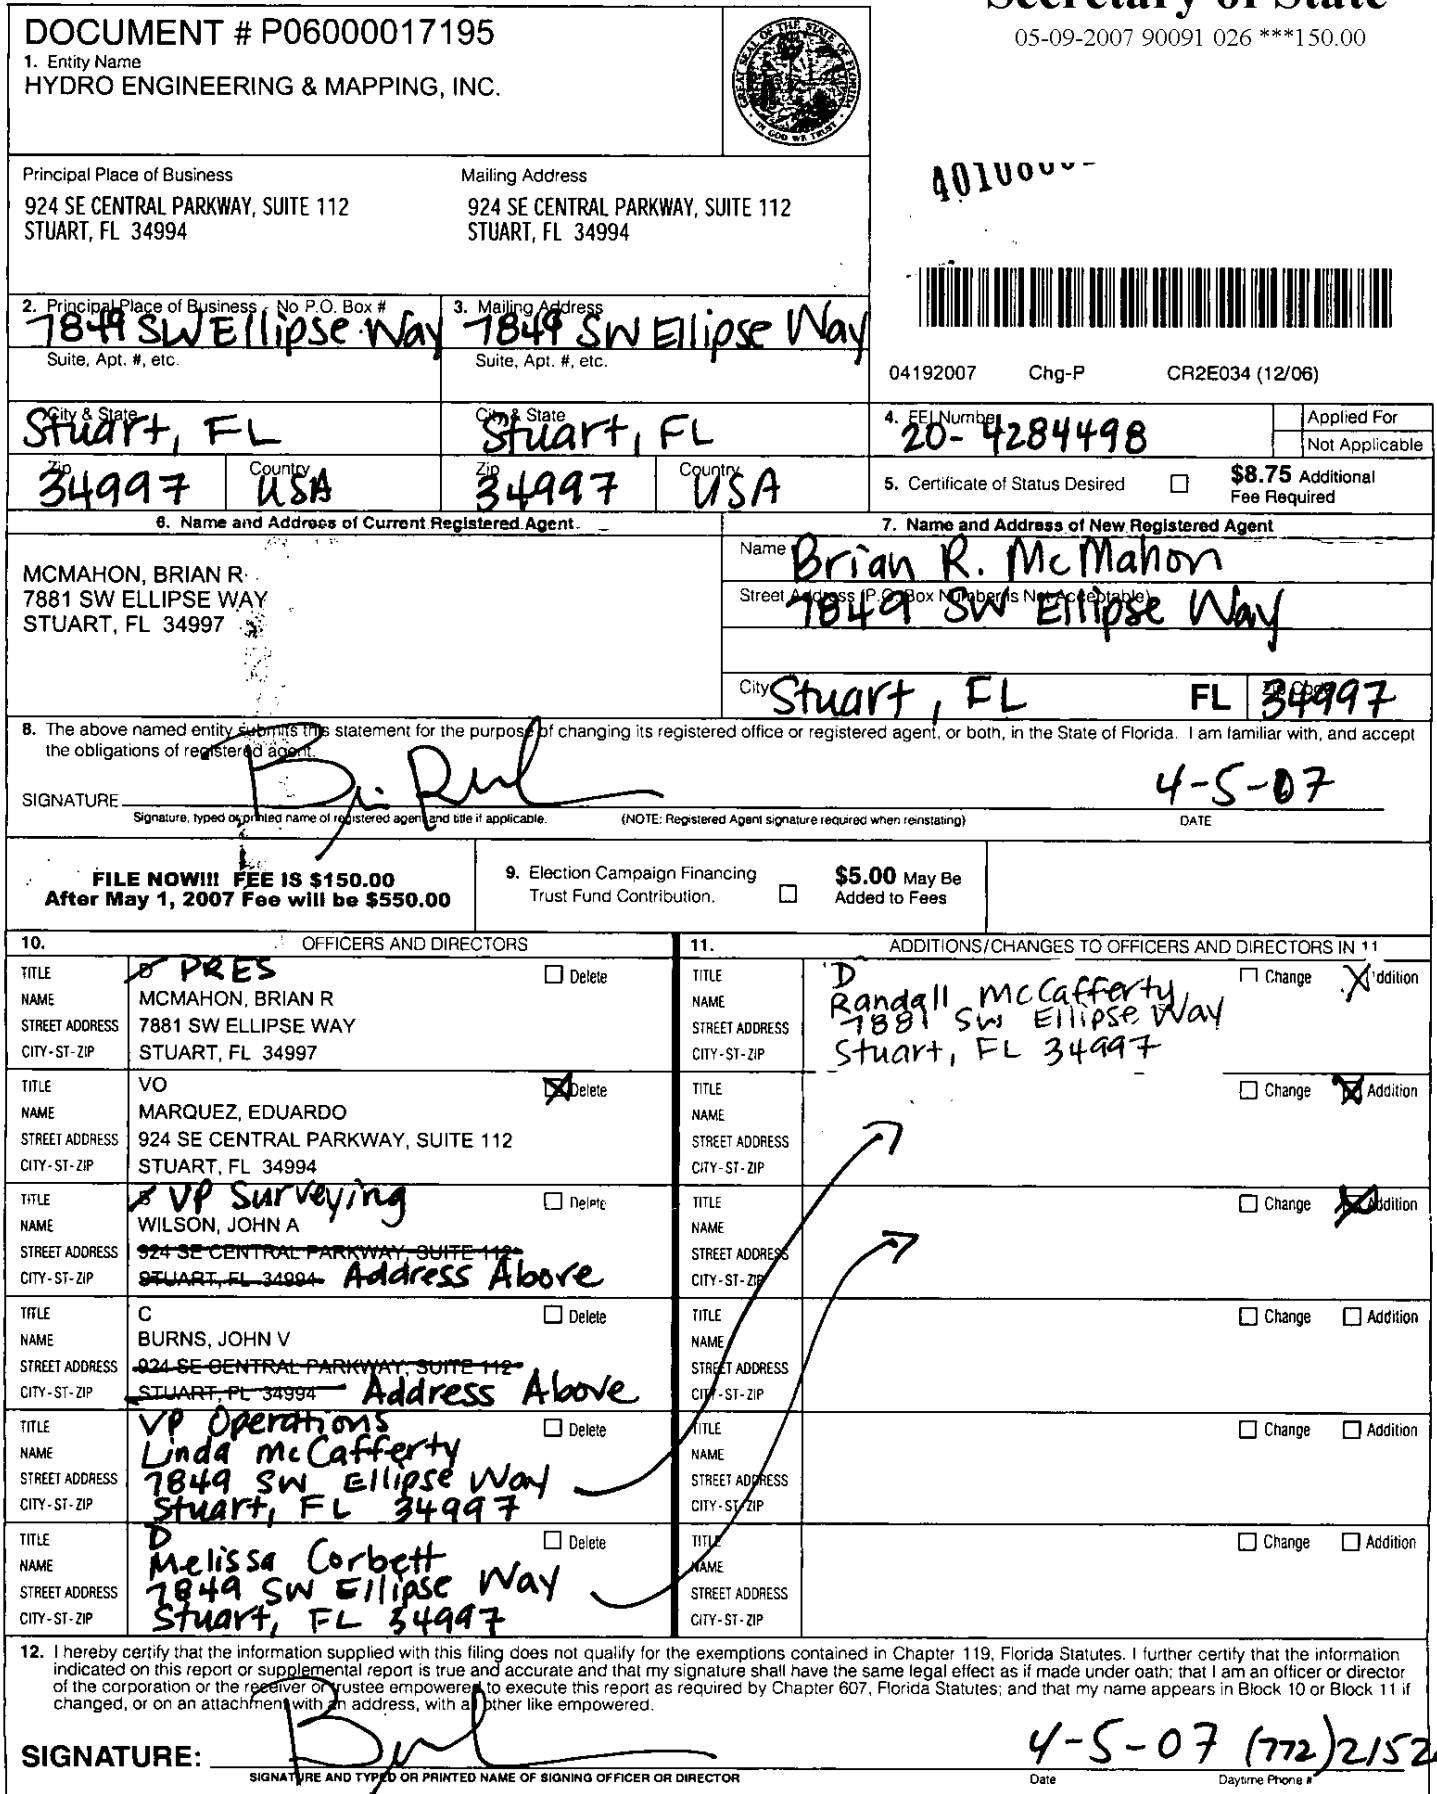 Secretary of State
05-09-2007 90091 026 ***150.00
DOCUMENT # P06000017195
1. Entity Name
HYDRO ENGINEERING & MAPPING, INC.
GREAT SEAL OF THE STATE OF FLORIDA
IN GOD WE TRUST
Principal Place of Business
924 SE CENTRAL PARKWAY, SUITE 112
STUART, FL 34994
Mailing Address
924 SE CENTRAL PARKWAY, SUITE 112
STUART, FL 34994
2. Principal Place of Business - No P.O. Box #
7849 SW Ellipse Way
Suite, Apt. #, etc.
City & State
Stuart, FL
Zip
34997
Country
USA
3. Mailing Address
7849 SW Ellipse Way
Suite, Apt. #, etc.
City & State
Stuart, FL
Zip
34997
Country
USA
04192007 Chg-P CR2E034 (12/06)
4. FEI Number
20-4284498
Applied For
Not Applicable
5. Certificate of Status Desired
$8.75 Additional
Fee Required
6. Name and Address of Current Registered Agent
MCMAHON, BRIAN R
7881 SW ELLIPSE WAY
STUART, FL 34997
7. Name and Address of New Registered Agent
Name
Brian R. McMahon
Street Address (P.O. Box Number is Not Acceptable)
7849 SW Ellipse Way
City Stuart, FL FL Zip Code 34997
8. The above named entity submits this statement for the purpose of changing its registered office or registered agent, or both, in the State of Florida. I am familiar with, and accept
the obligations of registered agent.
SIGNATURE
4-5-07
Signature, typed or printed name of registered agent and title if applicable. (NOTE: Registered Agent signature required when reinstating) DATE
FILE NOW!!! FEE IS $150.00
After May 1, 2007 Fee will be $550.00
9. Election Campaign Financing
Trust Fund Contribution.
$5.00 May Be
Added to Fees
10. OFFICERS AND DIRECTORS
TITLE D PRES Delete
NAME MCMAHON, BRIAN R
STREET ADDRESS 7881 SW ELLIPSE WAY
CITY-ST-ZIP STUART, FL 34997
TITLE VO Delete
NAME MARQUEZ, EDUARDO
STREET ADDRESS 924 SE CENTRAL PARKWAY, SUITE 112
CITY-ST-ZIP STUART, FL 34994
TITLE VP Surveying Delete
NAME WILSON, JOHN A
STREET ADDRESS 924 SE CENTRAL PARKWAY, SUITE 112
CITY-ST-ZIP STUART, FL 34994 Address Above
TITLE C Delete
NAME BURNS, JOHN V
STREET ADDRESS 924 SE CENTRAL PARKWAY, SUITE 112
CITY-ST-ZIP STUART, FL 34994 Address Above
TITLE VP Operations Delete
NAME Linda McCafferty
STREET ADDRESS 7849 SW Ellipse Way
CITY-ST-ZIP Stuart, FL 34997
TITLE D Delete
NAME Melissa Corbett
STREET ADDRESS 7849 SW Ellipse Way
CITY-ST-ZIP Stuart, FL 34997
11. ADDITIONS/CHANGES TO OFFICERS AND DIRECTORS IN 11
TITLE D Change Addition
NAME Randall McCafferty
STREET ADDRESS 7881 SW Ellipse Way
CITY-ST-ZIP Stuart, FL 34997
TITLE Change Addition
NAME
STREET ADDRESS
CITY-ST-ZIP
TITLE Change Addition
NAME
STREET ADDRESS
CITY-ST-ZIP
TITLE Change Addition
NAME
STREET ADDRESS
CITY-ST-ZIP
TITLE Change Addition
NAME
STREET ADDRESS
CITY-ST-ZIP
TITLE Change Addition
NAME
STREET ADDRESS
CITY-ST-ZIP
12. I hereby certify that the information supplied with this filing does not qualify for the exemptions contained in Chapter 119, Florida Statutes. I further certify that the information
indicated on this report or supplemental report is true and accurate and that my signature shall have the same legal effect as if made under oath; that I am an officer or director
of the corporation or the receiver or trustee empowered to execute this report as required by Chapter 607, Florida Statutes; and that my name appears in Block 10 or Block 11 if
changed, or on an attachment with an address, with all other like empowered.
SIGNATURE:
4-5-07 (772) 2152
SIGNATURE AND TYPED OR PRINTED NAME OF SIGNING OFFICER OR DIRECTOR Date Daytime Phone #